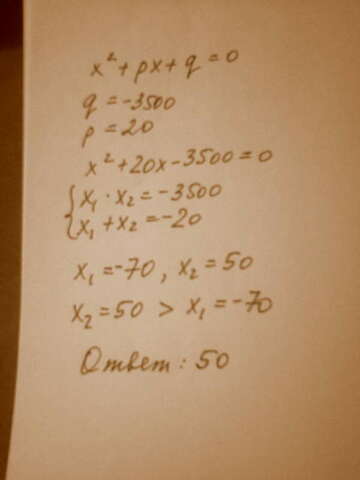 x² + px + q = 0
q = -3500
p = 20
x² + 20x - 3500 = 0
{ x₁ · x₂ = -3500
x₁ + x₂ = -20
x₁ = -70, x₂ = 50
x₂ = 50 > x₁ = -70
Ответ: 50